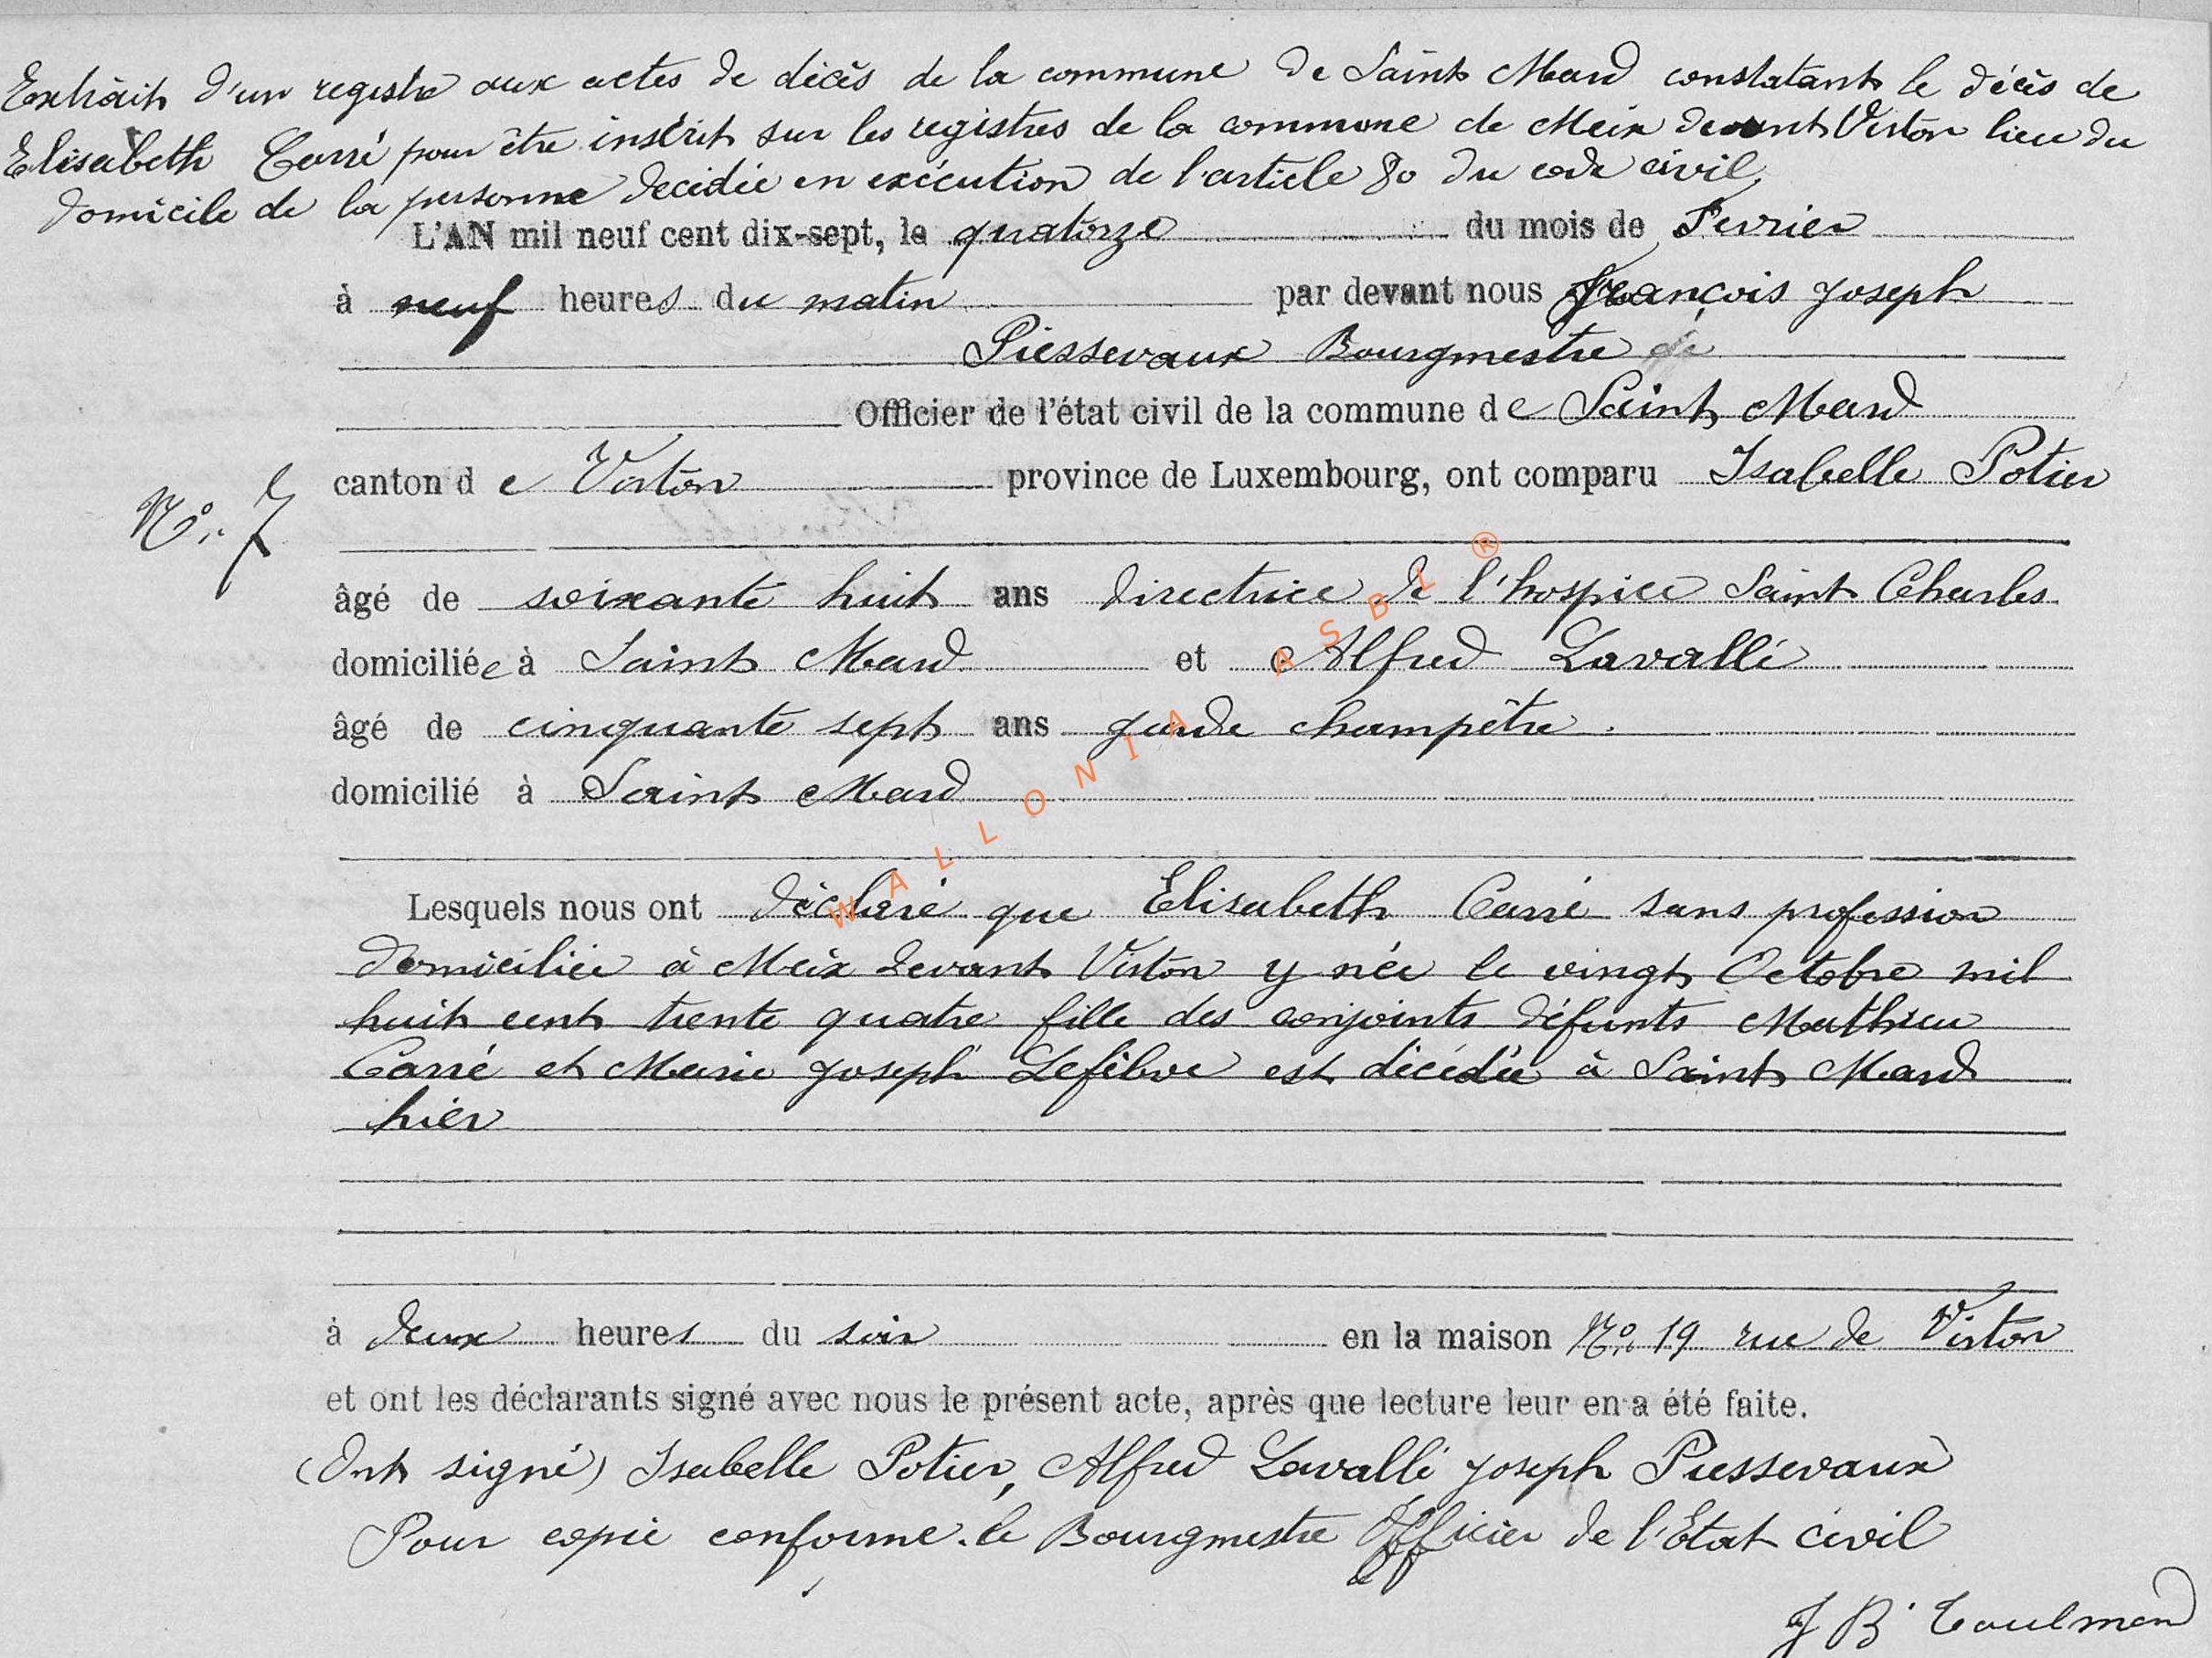 Extrait d'un registre aux actes de décès de la commune de Saint Mard constatant le décès de
Elisabeth Carré pour être inscrit sur les registres de la commune de Meix devant Virton lieu du
domicile de la personne décédée en exécution de l'article 80 du code civil.
L'AN mil neuf cent dix-sept, le quatorze du mois de Fevrier
à neuf heures du matin par devant nous François Joseph
Piessevaux Bourgmestre de
Officier de l'état civil de la commune de Saint Mard
canton de Virton province de Luxembourg, ont comparu Isabelle Potier
N° 7
âgé de soixante huit ans directrice de l'hospice Saint Charles
domiciliée à Saint Mard et Alfred Lavallé
âgé de cinquante sept ans garde champêtre
domicilié à Saint Mard
Lesquels nous ont déclaré que Elisabeth Carré sans profession
domiciliée à Meix devant Virton y née le vingt Octobre mil
huit cent trente quatre fille des conjoints défunts Mathieu
Carré et Marie Joseph Lefèbve est décédée à Saint Mard
hier
à deux heures du soir en la maison N° 19 rue de Virton
et ont les déclarants signé avec nous le présent acte, après que lecture leur en a été faite.
(Ont signé) Isabelle Potier, Alfred Lavallé Joseph Piessevaux
Pour copie conforme. le Bourgmestre Officier de l'Etat civil
J B Toulmond
WALLONIA ASBL ®